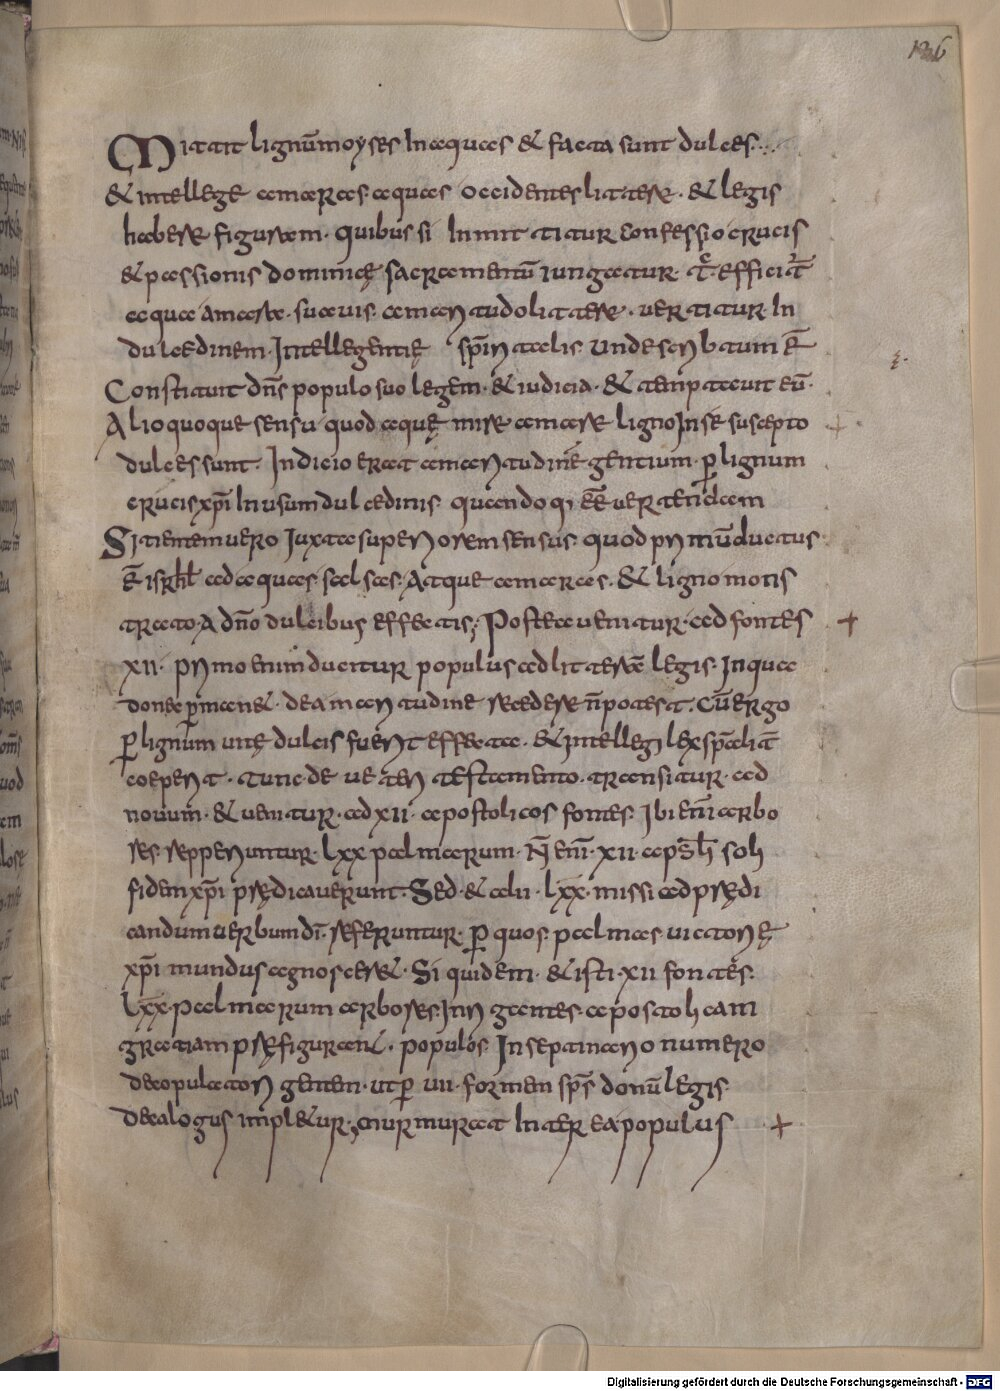 126
Mittit lignū moyses In aquas & facta sunt dulces
& intellege amaras aquas occidentes litterae · & legis
habere figuram · quibus si Inmittitur confessio crucis
& passionis dominicę sacramentū iungatur · tc̄ efficit̄
aqua amara · suavis · amaritudo litterae · vertitur In
dulcedinem · Intellegentię spiritalis unde scribtum ē
Constituit dn̄s populo suo legem · & iudicia · & temptavit eū ·
Alio quoque sensu quod aquę mirae amarae ligno In se suscepto
dulces sunt · Indicio erat amaritudinē gentium · p̱ lignum
crucis xp̄i In usum dulcedinis · quandoq; eē vertendam
Sitientem vero Iuxta superiorem sensus · quod primū ductus
ē isrhl ad aquas salsas · Atque amaras · & ligno monst
trato · A dn̄o dulcibus effectis; Postea venitur · ad fontes
xii · primo enim ducitur populus ad litterā legis · In qua
donec p̱manet · de amaritudine recedere n̄ potest · Cū ergo
p̱ lignum vitę dulcis fuerit effecta · & Intellegi lex sp̄alit̄
coeperit · tunc de veteri testamento · transitur · ad
novum · & venitur · ad xii · apostolicos fontes · Ibi enī arbo
res · repperiuntur · lxx palmarum · N̄ enī · xii · apsl̄i soli
fidem xp̄i prędicaverunt · Sed · & alii · lxx · missi ad prędi
candum verbum dī · referuntur · p̱ quos · palmas victorię
xp̄i mundus agnosceret · Siquidem · & isti · xii fontes ·
lxx · palmarum arbores · Inri gantes · apostolicam
gratiam prefigurant · populos · In septinario numero
decopulatori genten · ut p̱ vii · formem sp̄s donū legis
decalogus impletur · murmurat Inter ea populus